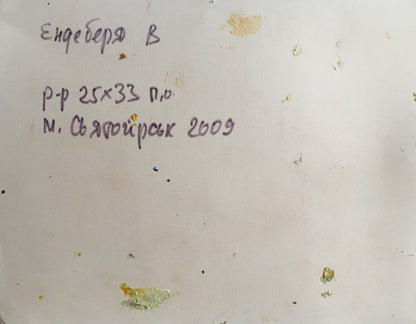 Ендеберя В
р-р 25х33 п,о
м. Святойрськ 2009